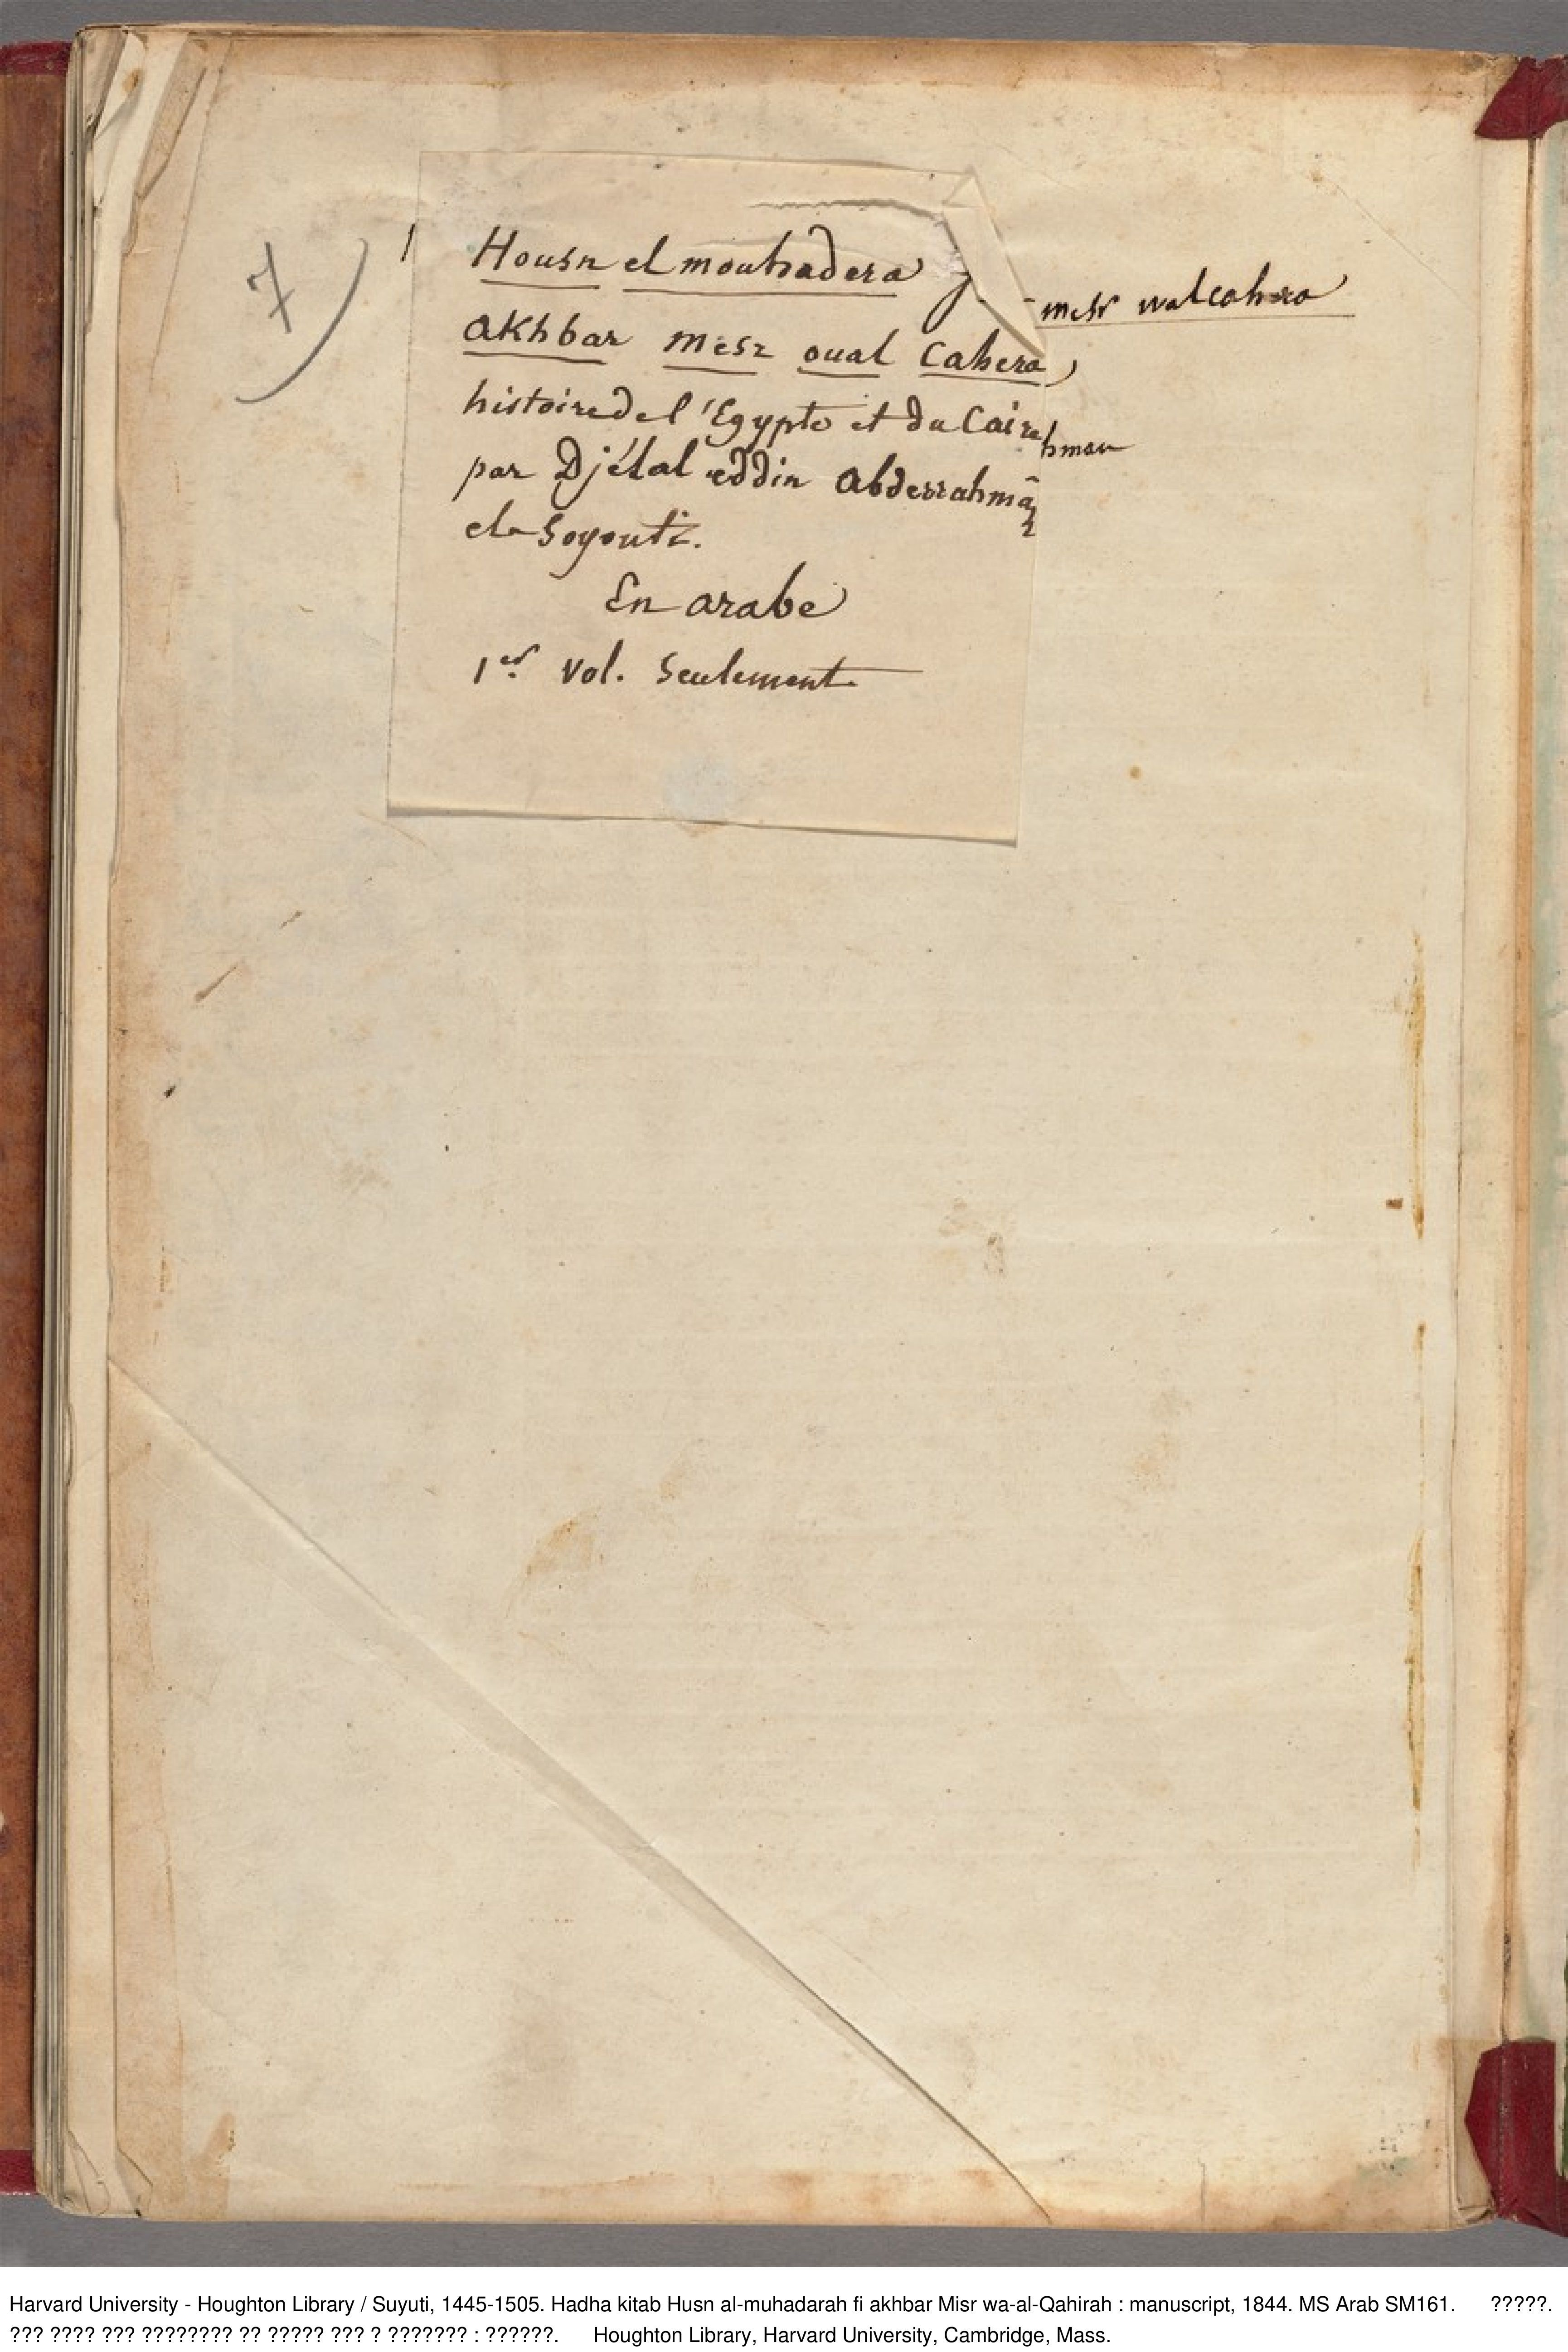 7)
Housn el mouhadera
mesr walcahera
akhbar mesr oual Cahera
histoire de l'Egypte et du Caire
hman
par Djélal eddin abderrahmân
el Soyouti.
En arabe
1er vol. Seulement
Harvard University - Houghton Library / Suyuti, 1445-1505. Hadha kitab Husn al-muhadarah fi akhbar Misr wa-al-Qahirah : manuscript, 1844. MS Arab SM161. ?????.
??? ???? ??? ???????? ?? ????? ??? ? ??????? : ??????. Houghton Library, Harvard University, Cambridge, Mass.